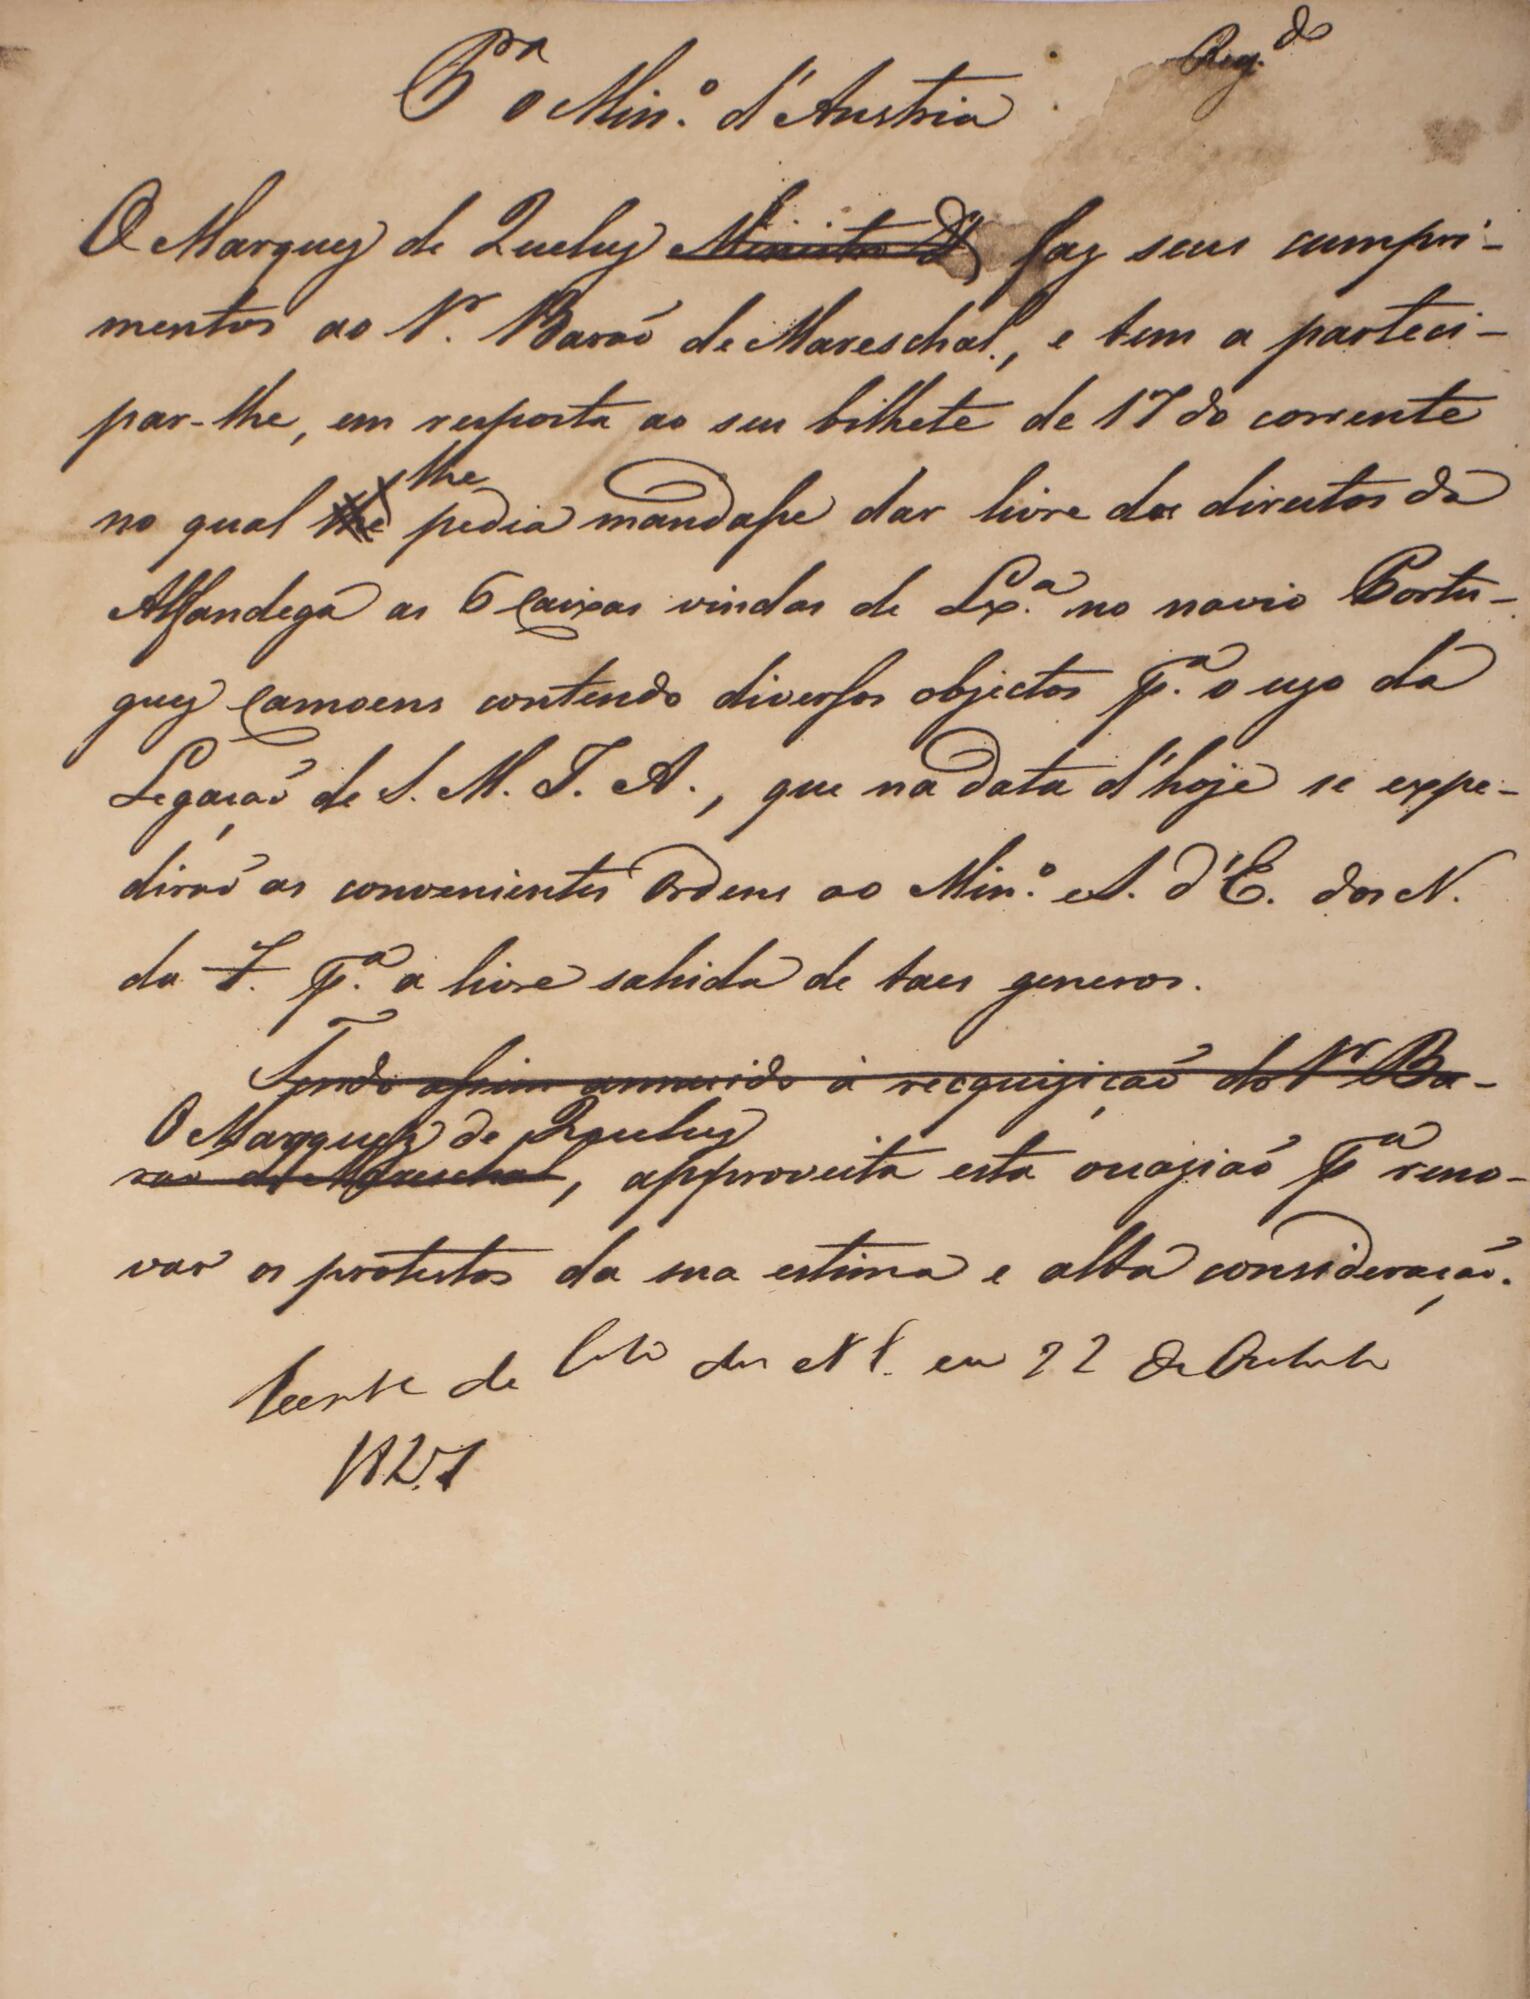 Reg.do
Pra o Min.o d'Austria
O Marquez de Queluz Ministro d' faz seus cumpri-
mentos ao Sr. Barão de Mareschal, e tem a parteci-
par-lhe, em resposta ao seu bilhete de 17 do corrente
no qual lhe lhe pedia mandasse dar livre dos direitos da
Alfandega as 6 Caixas vindas de Lx.a no navio Portu-
guez Camoens contendo diversos objectos p.a o uzo da
Legação de S. M. I. A., que na data d'hoje se expe-
dirão as convenientes Ordens ao Min.o e S. d'E. dos N.
da F. p.a a livre sahida de taes generos.
Tendo assim annuido á recquizição do Sr Ba-
O Marquez de Queluz
rão de Mareschal, approveita esta occazião p.a reno-
var os protestos da sua estima e alta consideração.
de dos N E. em 22 de Outubro
1827